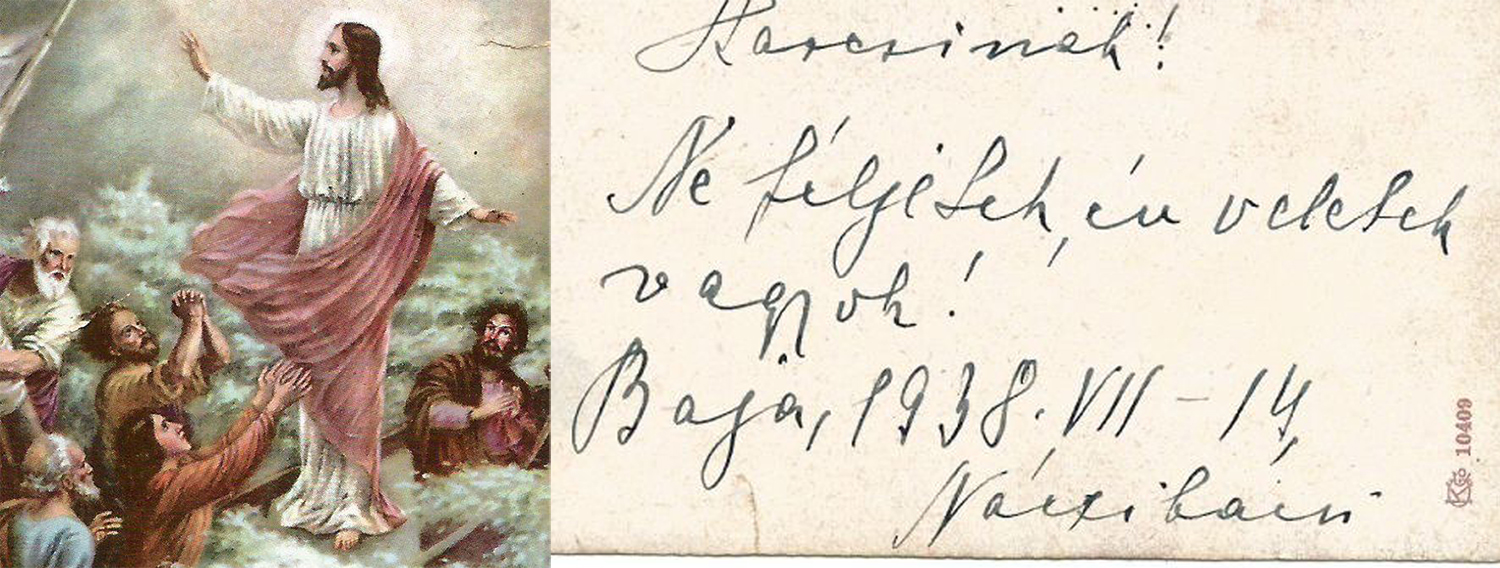 Karcsinak!
Ne féljetek, én veletek
vagyok!
Baja, 1938. VII - 14,
Nárcibácsi
10409